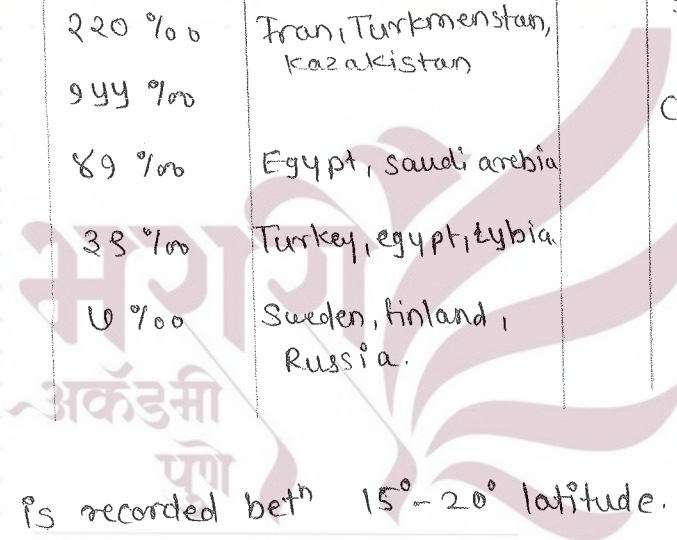 २२० ‰ Iran, Turkmenstan,
kazakistan
१५५ ‰
४१ ‰ Egypt, saudi arebia
३९ ‰ Turkey, egypt, Lybia.
७ ‰ Sweden, finland,
Russia.
अकॅडमी
पुणे
is recorded betn 15°-20° latitude.